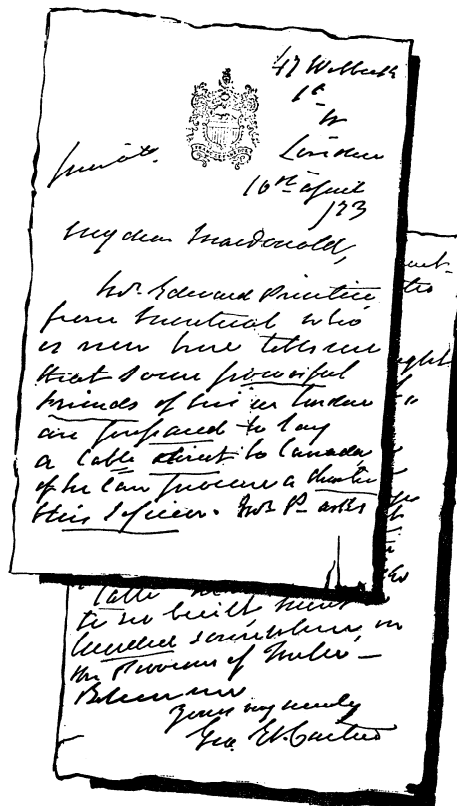 47 Welbeck
St
W
London
Private.
10th April
/73
My dear Macdonald,
Mr. Edward Prentice
from Montreal who
is now here tells me
that some powerful
friends of his in London
are prepared to lay
a Cable direct to Canada
if he can procure a charter
this Session. Mr. P. asks
Cable
to be built must
landed somewhere in
the Province of Quebec —
Believe me
Yours very truly
Geo. Et. Cartier